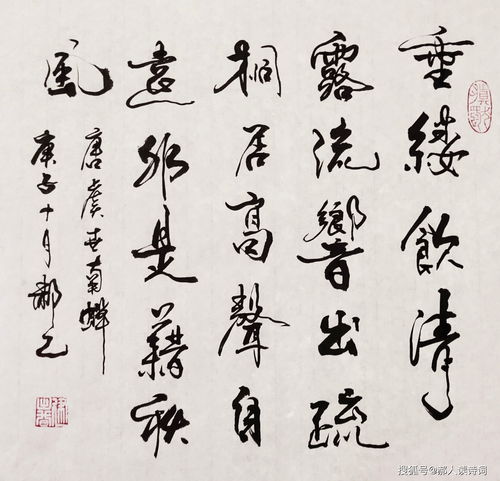 垂緌飲清
露流響出疏
桐居高聲自
遠非是藉秋
風
唐虞世南蟬
庚子十月郝
搜狐号@郝人读诗词